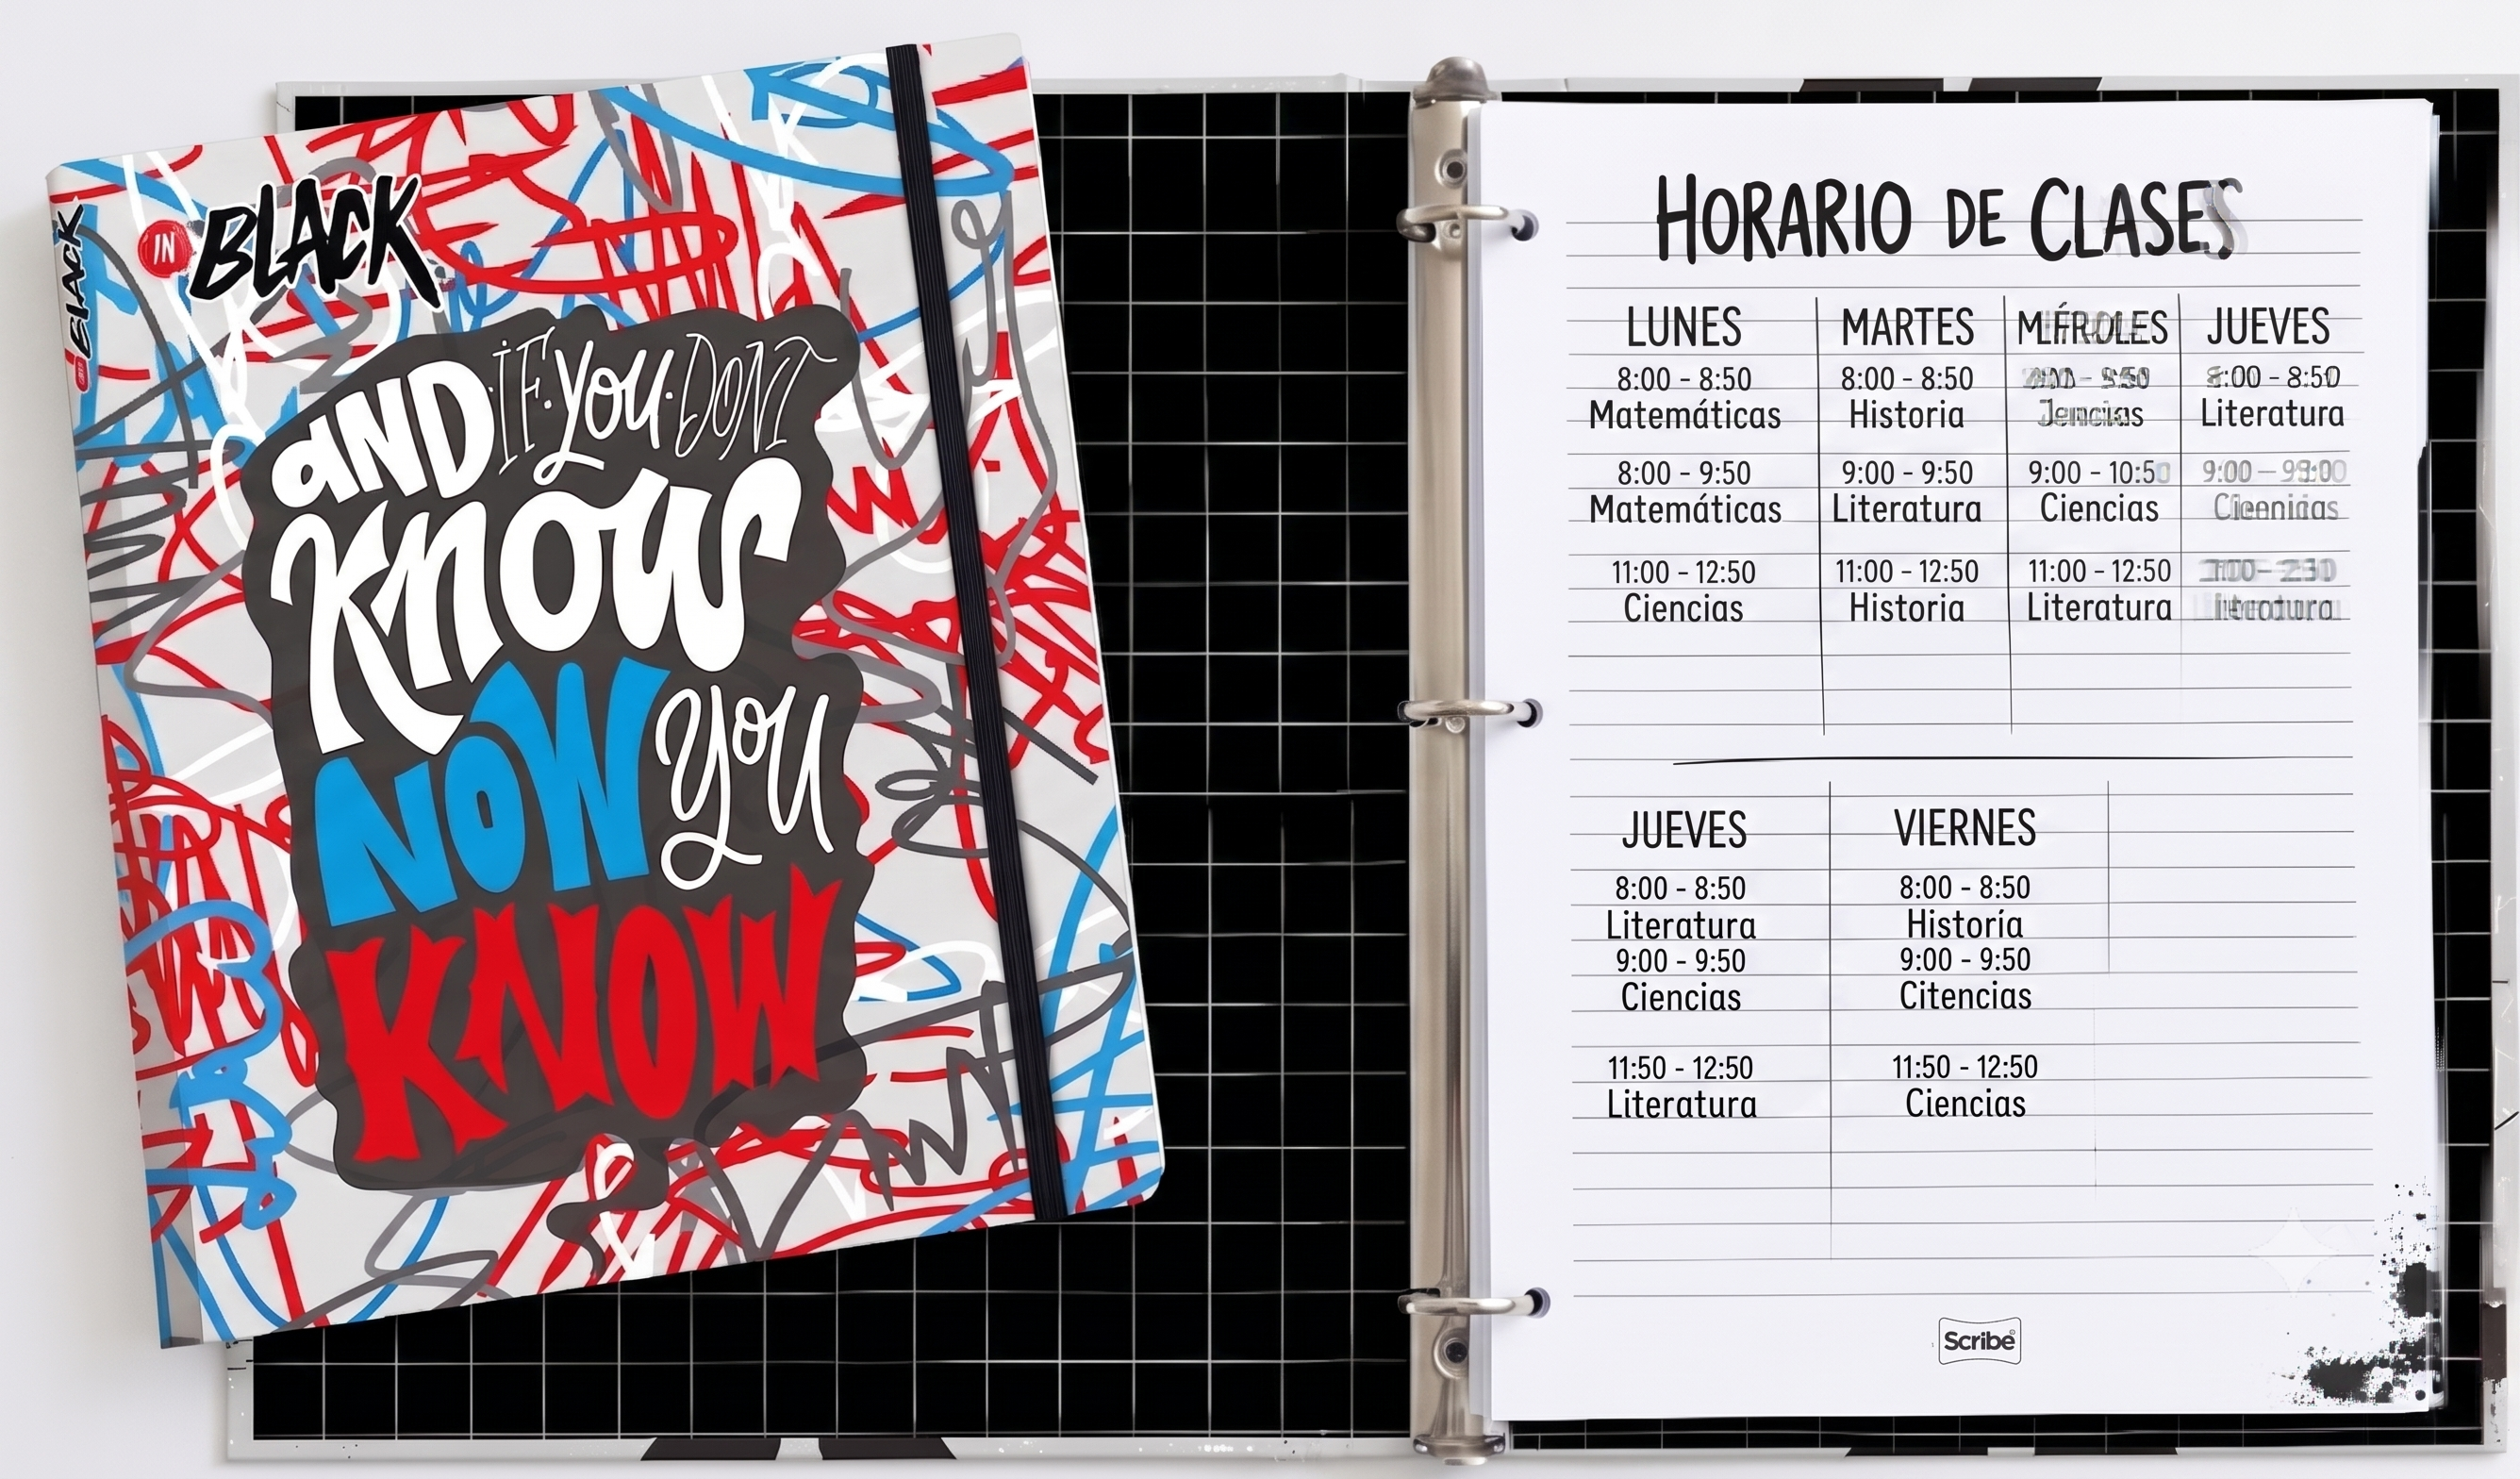 IN BLACK
IN BLACK
AND·IF·YOU·DONT
KNOW
NOW YOU
KNOW
HORARIO DE CLASES
LUNES MARTES JUEVES
8:00 - 8:50 8:00 - 8:50 8:00 - 8:50
Matemáticas Historia Literatura
8:00 - 9:50 9:00 - 9:50 9:00 - 10:50
Matemáticas Literatura Ciencias
11:00 - 12:50 11:00 - 12:50 11:00 - 12:50
Ciencias Historia Literatura
JUEVES VIERNES
8:00 - 8:50 8:00 - 8:50
Literatura Historía
9:00 - 9:50 9:00 - 9:50
Ciencias Citencias
11:50 - 12:50 11:50 - 12:50
Literatura Ciencias
Scribe